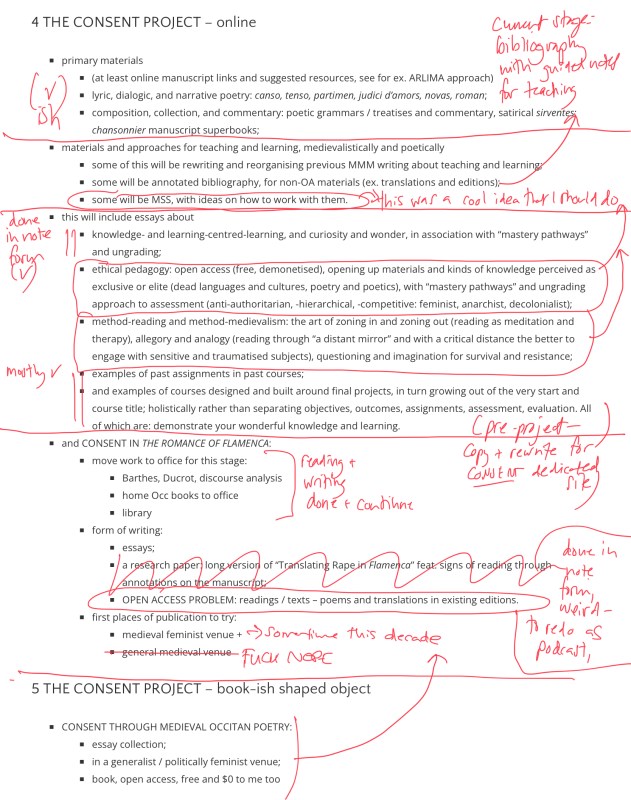 4 THE CONSENT PROJECT – online
current stage:
bibliography
with guided notes
for teaching
primary materials
(at least online manuscript links and suggested resources, see for ex. ARLIMA approach)
lyric, dialogic, and narrative poetry: canso, tenso, partimen, judici d’amors, novas, roman;
composition, collection, and commentary: poetic grammars / treatises and commentary, satirical sirventes;
chansonnier manuscript superbooks;
(√)
ish
materials and approaches for teaching and learning, medievalistically and poetically
some of this will be rewriting and reorganising previous MMM writing about teaching and learning;
some will be annotated bibliography, for non-OA materials (ex. translations and editions);
some will be MSS, with ideas on how to work with them. → this was a cool idea that I should do
done
in note
form
(√)
this will include essays about
knowledge- and learning-centred-learning, and curiosity and wonder, in association with “mastery pathways”
and ungrading;
ethical pedagogy: open access (free, demonetised), opening up materials and kinds of knowledge perceived as
exclusive or elite (dead languages and cultures, poetry and poetics), with “mastery pathways” and ungrading
approach to assessment (anti-authoritarian, -hierarchical, -competitive: feminist, anarchist, decolonialist);
method-reading and method-medievalism: the art of zoning in and zoning out (reading as meditation and
therapy), allegory and analogy (reading through “a distant mirror” and with a critical distance the better to
engage with sensitive and traumatised subjects), questioning and imagination for survival and resistance;
mostly √
examples of past assignments in past courses;
and examples of courses designed and built around final projects, in turn growing out of the very start and
course title; holistically rather than separating objectives, outcomes, assignments, assessment, evaluation. All
of which are: demonstrate your wonderful knowledge and learning.
(pre-project –
copy + rewrite for
CONSENT dedicated
site)
and CONSENT IN THE ROMANCE OF FLAMENCA:
move work to office for this stage:
Barthes, Ducrot, discourse analysis
home Occ books to office
library
reading +
writing
done + continue
form of writing:
essays;
a research paper: long version of “Translating Rape in Flamenca” feat. signs of reading through
annotations on the manuscript;
OPEN ACCESS PROBLEM: readings / texts – poems and translations in existing editions.
done in
note
form,
weird –
to redo as
podcast,
first places of publication to try:
medieval feminist venue + → sometime this decade
general medieval venue FUCK NOPE
5 THE CONSENT PROJECT – book-ish shaped object
CONSENT THROUGH MEDIEVAL OCCITAN POETRY:
essay collection;
in a generalist / politically feminist venue;
book, open access, free and $0 to me too